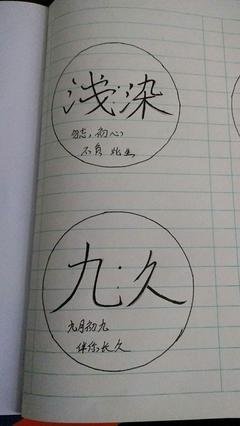 浅:染
勿忘,初心,
不负 此生
九:久
九月初九
伴你长久